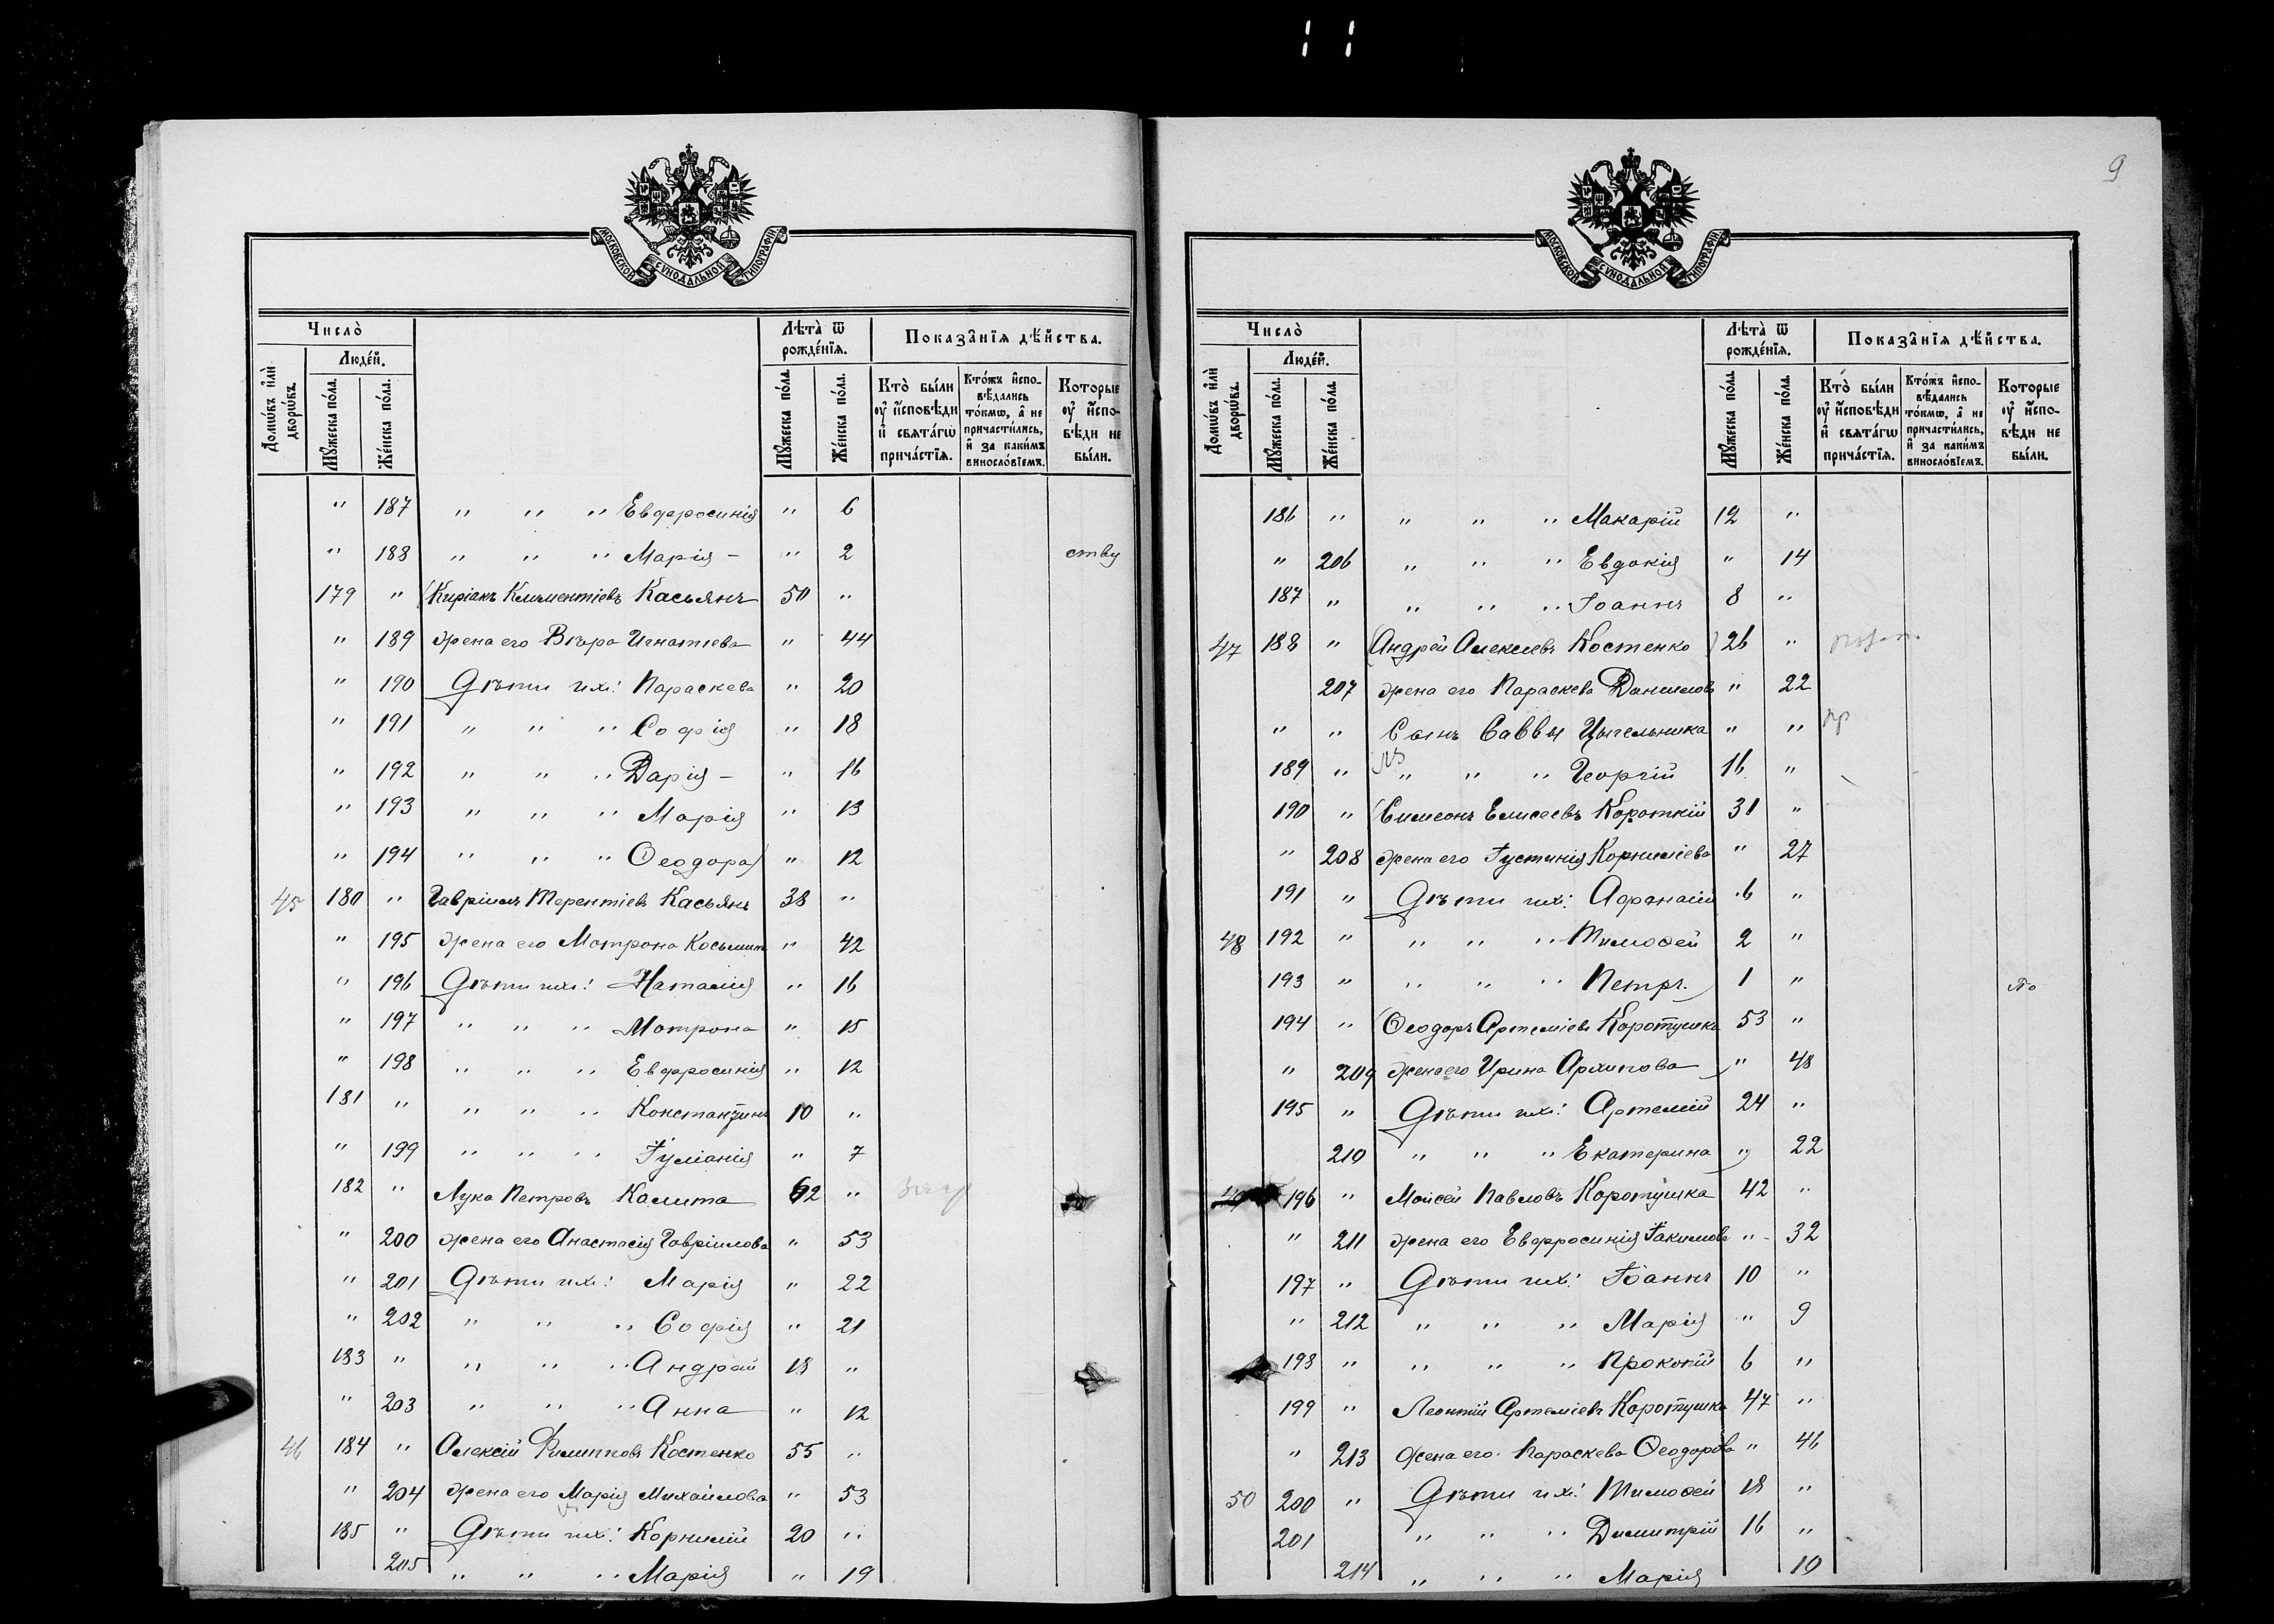 МОСКОВСКОЙ СѴНОДАЛЬНОЙ ТИПОГРАФІИ
Число̀
Людéй.
Лѣта̀ ѿ рождéнїѧ.
Показа̑нїѧ дѣ́йства.
Домѡ́въ и҆лѝ дворѡ́въ.
Мꙋ́жеска пóла.
Же́нска пóла.
Мꙋ́жеска пóла.
Же́нска пóла.
Кто̀ бы́ли ᲂу҆ и҆́сповѣди и҆ свѧта́гѡ прича́стїѧ.
Кто́жъ и҆спо- вѣ́дались то́кмѡ, а҆ не причасти́лись, и҆ за каки́мъ виносло́вїемъ.
Которые ᲂу҆ и҆́спо- вѣди не бы́ли.
" 187 " " " Евфросинія " 6
" 188 " " " Марія – " 2 ству
179 " (Киріакъ Климентіевъ Касьянъ 50 "
" 189 жена его Вѣра Игнатіева " 44
" 190 Дѣти ихъ: Параскева " 20
" 191 " " " Софія " 18
" 192 " " " Дарія – " 16
" 193 " " " Марія " 13
" 194 " " " Ѳеодора) " 12
45 180 " Гавріилъ Терентіевъ Касьянъ 38 "
" 195 жена его Матрона Косьмин " 42
" 196 Дѣти ихъ: Наталія " 16
" 197 " " " Матрона " 15
" 198 " " " Евфросинія " 12
181 " " " " Константинъ 10 "
" 199 " " " Іуліанія " 7
182 " Лука Петровъ Калита 62 "
" 200 жена его Анастасія Гавріилова " 53
" 201 Дѣти ихъ: Марія " 22
" 202 " " " Софія " 21
183 " " " " Андрей 18 "
" 203 " " " Анна " 12
46 184 " Алексій Филипповъ Костенко 55 "
" 204 жена его Марія Михайлова " 53
185 " Дѣти ихъ: Корнилій 20 "
205 " " " Марія " 19
9
МОСКОВСКОЙ СѴНОДАЛЬНОЙ ТИПОГРАФІИ
Число̀
Людéй.
Лѣта̀ ѿ рождéнїѧ.
Показа̑нїѧ дѣ́йства.
Домѡ́въ и҆лѝ дворѡ́въ.
Мꙋ́жеска пóла.
Же́нска пóла.
Мꙋ́жеска пóла.
Же́нска пóла.
Кто̀ бы́ли ᲂу҆ и҆́сповѣди и҆ свѧта́гѡ прича́стїѧ.
Кто́жъ и҆спо- вѣ́дались то́кмѡ, а҆ не причасти́лись, и҆ за каки́мъ виносло́вїемъ.
Которые ᲂу҆ и҆́спо- вѣди не бы́ли.
186 " " " " Макарій 12 "
" 206 " " " Евдокія " 14
187 " " " " Іоаннъ 8 "
47 188 " (Андрей Алексіевъ Костенко) 26 "
207 жена его Параскева Данилов " 22
" " Сынъ Саввы Цыгельника " " пр
189 " " " " Георгій 16 "
190 " (Симеонъ Елисеевъ Короткій 31 "
" 208 жена его Іустинія Корниліева " 27
191 " Дѣти ихъ: Афанасій 6 "
48 192 " " " " Тимоѳей 2 "
193 " " " " Петръ.) 1 "
194 " (Ѳеодоръ Артеміевъ Коротушка 53 "
" 209 жена его Ирина Архипова " 48
195 " Дѣти ихъ: Артемій 24 "
210 " " " Екатерина) " 22
196 " Моисей Павловъ Коротушка 42 "
" 211 жена его Евфросинія Іакимова " 32
197 " Дѣти ихъ: Іоаннъ 10 "
" 212 " " " Марія " 9
198 " " " " Прокопій 6 "
199 " Леонтій Артеміевъ Коротушка 47 "
" 213 жена его Параскева Ѳеодорова " 46
50 200 " Дѣти ихъ: Тимоѳей 18 "
201 " " " Димитрій 16 "
214 " " " Марія 10